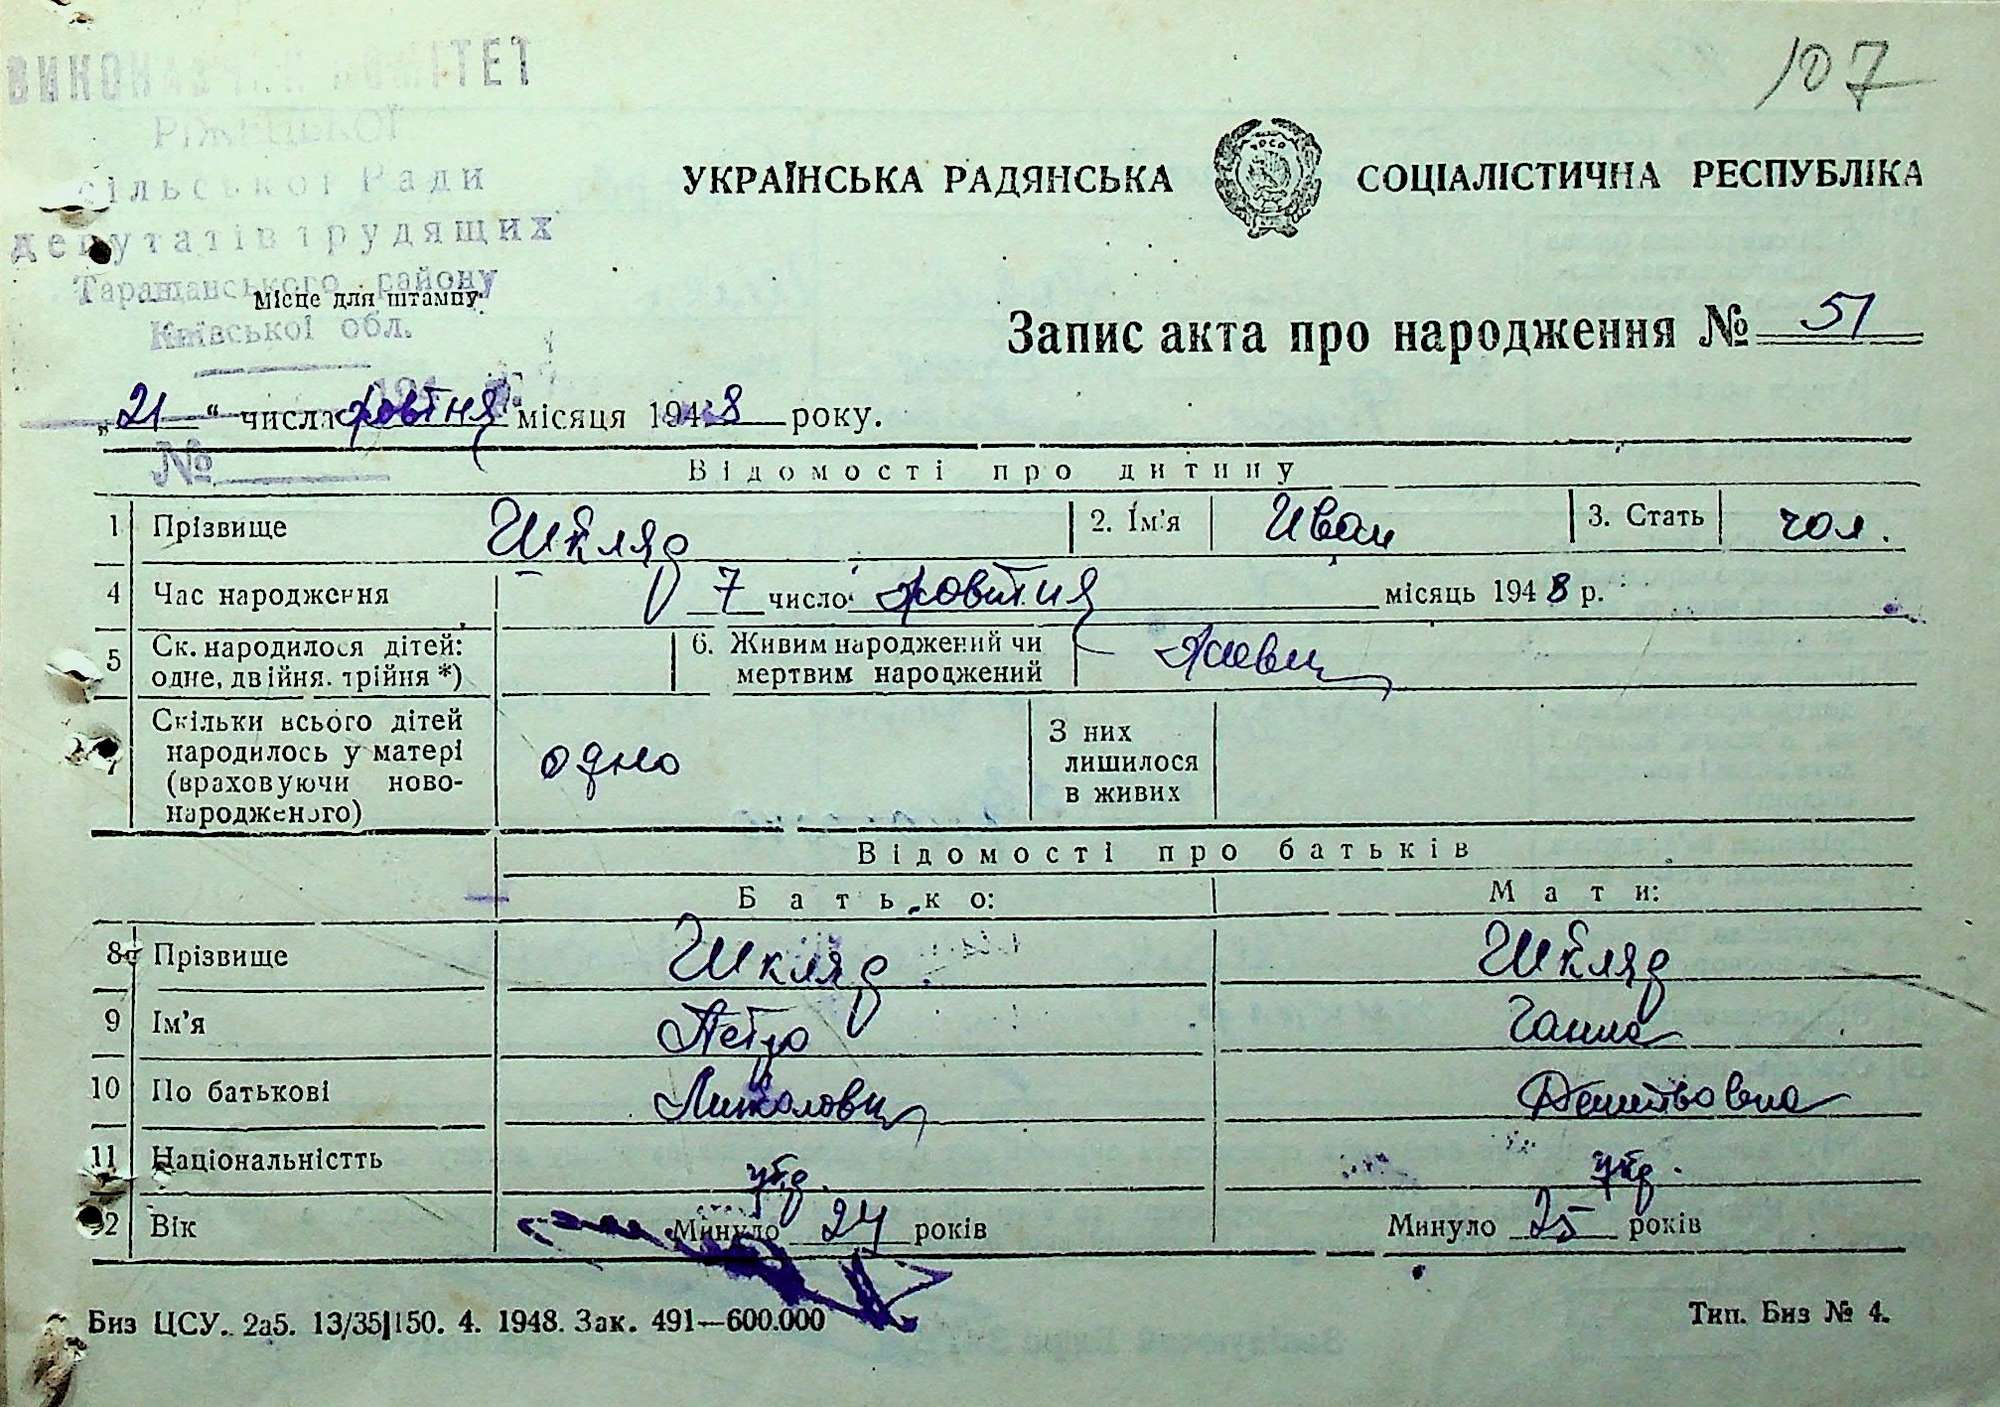 107
ВИКОНАВЧИЙ КОМІТЕТ
сільської Ради
депутатів трудящих
Таращанського району
Київської обл.
УКРАЇНСЬКА РАДЯНСЬКА СОЦІАЛІСТИЧНА РЕСПУБЛІКА
Місце для штампу
Запис акта про народження № 51
„21“ числа жовтня місяця 1948 року.
№
Відомості про дитину
1 Прізвище Шкляр 2. Ім'я Иван 3. Стать чол.
4 Час народження 7 число жовтня місяць 1948 р.
5 Ск. народилося дітей: одне, двійня. трійня *) 6. Живим народжений чи мертвим народжений Живим
7 Скільки всього дітей народилось у матері (враховуючи ново-народженого) одно З них лишилося в живих
Відомості про батьків
Батько: Мати:
8 Прізвище Шкляр Шкляр
9 Ім'я Петро Ганна
10 По батькові
11 Національністть укр. укр.
12 Вік Минуло 24 років Минуло 25 років
Биз ЦСУ. 2а5. 13/35|150. 4. 1948. Зак. 491—600.000 Тип. Биз № 4.